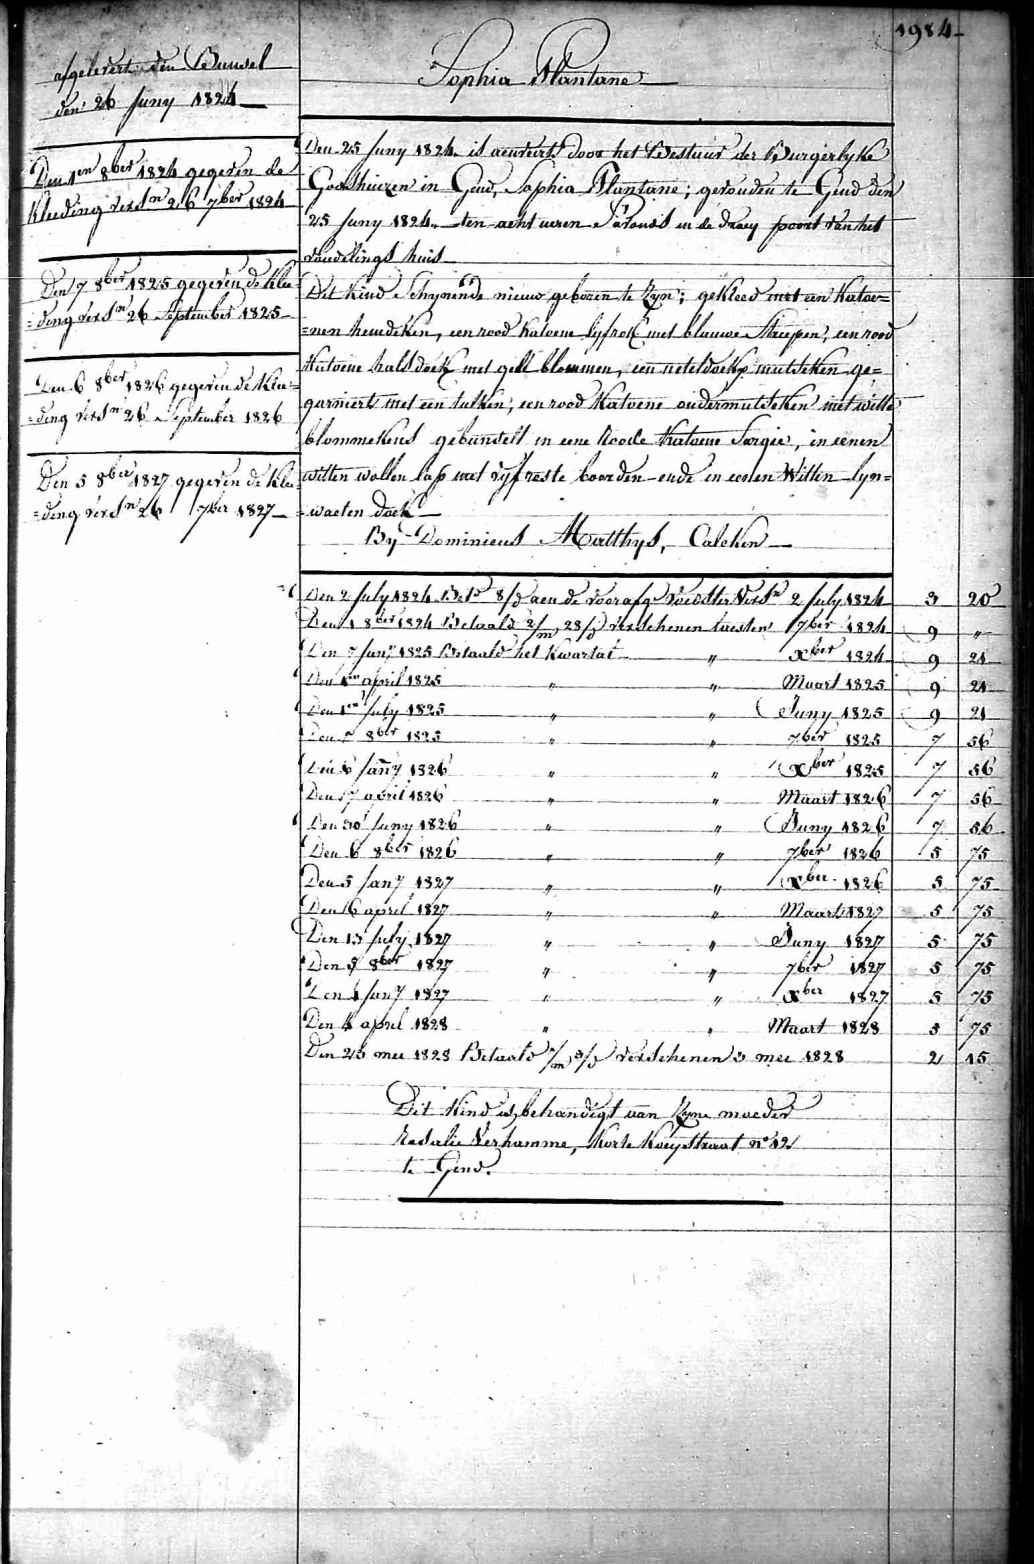 1984
afgelevert den Bundel
den 26 Juny 1824
Den 1en 8ber 1824 gegeven de
Kleeding versn 26 7ber 1824
Den 7 8ber 1825 gegeven de Klee
=ding versn 26 September 1825
Den 6 8ber 1826 gegeven de Klee=
=ding versn 26 September 1826
Den 5 8ber 1827 gegeven de Klee
=ding versn 26 7ber 1827
Sophia Plantane
Den 25 Juny 1824 is aenveert door het Bestuur der Burgerlyke
Godshuizen in Gend, Sophia Plantane; gevonden te Gend den
25 Juny 1824 ten acht uren s'avonds in de draey poort van het
vondelings huis
Dit Kind Schynende nieuw geboren te Zyn; gekleed met een Katoe=
=nen hemdeken, een rood Katoene lyfrok met blauwe Streepen, een rood
Katoene halsdoek met gele blommen, een neteldoekx mutsken ge=
garneert met een tulken; een rood Katoene ondermutseken met witte
blommekens gebundelt in eene Roode Katoene Sargie, in eenen
witten wollen lap met vyf reste boorden ende in eenen Witten lyn=
=waeten doek
By Dominicus Matthys, Calcken
Den 2 July 1824 Bet. 8/d aen de voorafge Voedster Versn 2 July 1824 3 20
Den 1 8ber 1824 Betaald 2/m 28/d verschenen laesten 7ber 1824 9 "
Den 7 Jany 1825 Betaald het Kwartal " Xber 1824 9 21
Den 1en april 1825 " " Maart 1825 9 21
Den 1en July 1825 " " Juny 1825 9 21
Den 7 8ber 1825 " " 7ber 1825 7 56
Den 6 Jany 1826 " " Xber 1825 7 56
Den 17 april 1826 " " Maart 1826 7 56
Den 30 Juny 1826 " " Juny 1826 7 56
Den 6 8ber 1826 " " 7ber 1826 5 75
Den 5 Jany 1827 " " Xber 1826 5 75
Den 16 april 1827 " " Maart 1827 5 75
Den 13 July 1827 " " Juny 1827 5 75
Den 5 8ber 1827 " " 7ber 1827 5 75
Den 4 Jany 1827 " " Xber 1827 5 75
Den 4 april 1828 " " Maart 1828 5 75
Den 23 mei 1828 Betaald /m /d verschenen 3 mei 1828 2 15
Dit Kind is behandigt aan Zyne moeder
Rosalie Verhamme, Korte Kooystraat no 12
te Gend.